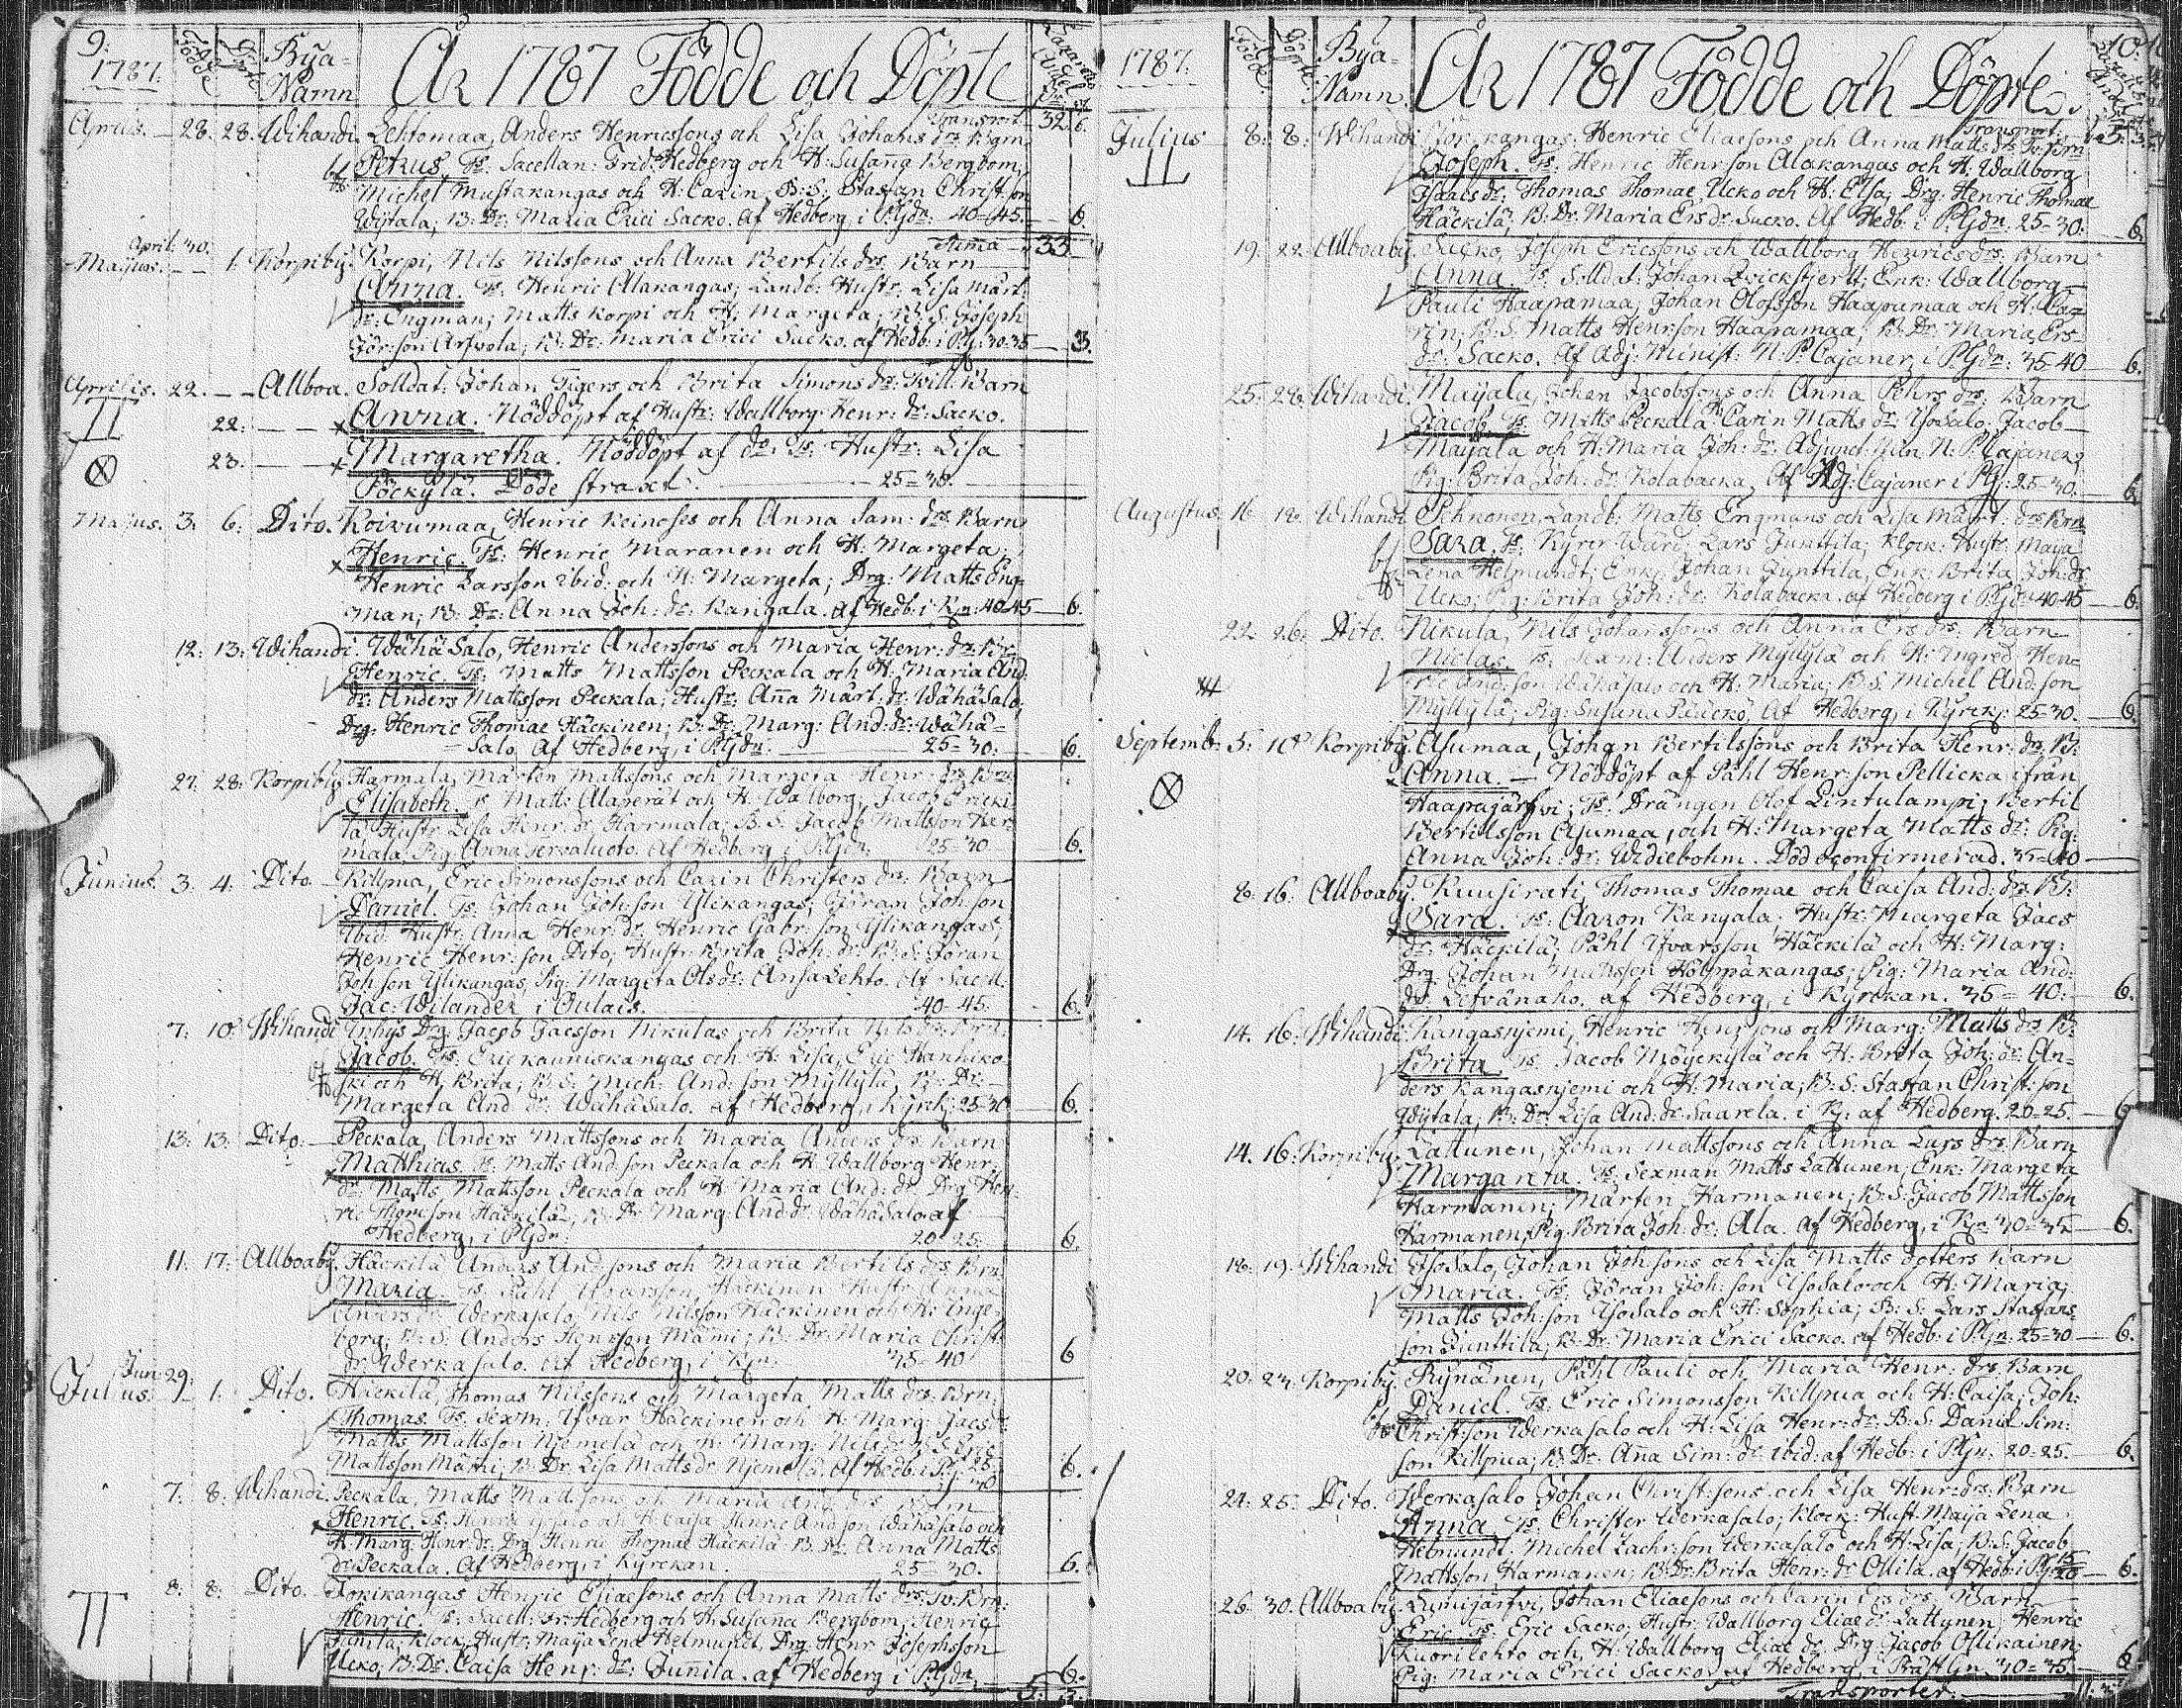 9.
1787.
Födde
Döpte
Bya-
Namn
År 1787 Födde och Döpte
Transport 32. 6.
Aprilis. 28. 28. Wihandi. Lehtomaa, Anders Henricssons och Lisa Johans drs Barn
Petrus, Ts. Sacellan: Frid: Hedberg och H: Susanna Bergbom;
Michel Mustakangas och H: Carin, B: S: Staffan Christ:son
Wijtala; B: Dr: Maria Erici Sacko. Af Hedberg, i P:Gdn: 40-45. 6.
Summa 33.
April: 30.
Majus. 1. Korpiby. Korpi, Nils Nilssons och Anna Bertils drs Barn
Anna. Ts. Henric Alakangas; Landb: Hustr: Lisa Mårt:
dr: Engman; Matts Korpi och H: Margeta; B: S: Joseph
Jör:son Arfvola; B: Dr: Maria Erici Sacko. af Hedb: i P:Gj: 30-35 3.
Aprilis. 22. Allboa. Solldat: Johan Tigers och Brita Simons dr: Tvill: Barn
22. Anna. Nöddöpt af Hustr: Wallborg Henr: dr: Sacko.
23. Margaretha. Nöddöpt af do Ts: Hustr: Lisa
Pöckylä. Döde straxt. 25-30.
Majus. 3. 6. Dito. Koivumaa, Henric Keinoses och Anna Sam: drs Barn
Henric. Ts: Henric Maranen och H: Margeta;
Henric Larsson ibid: och H: Margeta; Drg: Matts Eng-
man; B: Dr: Anna Joh: dr: Kangala. af Hedb: i Kjn: 40-45 6.
12. 13. Wihandi. Wähä Salo, Henric Anderssons och Maria Henr: drs Brn
Henric. Ts: Matts Mattsson Peckala och H: Maria And:
dr: Anders Mattsson Peckala; Hustr: Anna Mårt: dr: Wähäsalo;
Drg: Henric Thomae Häckinen; B: Dr: Marg: And: dr: Wähä-
Salo. Af Hedberg, i P:Gjdn: 25-30. 6.
27. 28. Korpiby. Harmala, Mårten Mattssons och Margeta Henr: drs Brn
Elisabeth. Ts Matts Alaperät och H: Walborg; Jacob Ericki-
la, Hustr Lisa Henr: dr Harmala; B. S. Jacob Mattsson Har-
mala, Pig: Anna. Af Hedberg i P:Gjdn: 25-30 6.
Junius. 3. 4. Dito. Killpua, Eric Simonssons och Carin Christers drs Barn
Daniel. Ts. Johan Joh:son Ylikangas; Göran Joh:son
Ibid: Hustr: Anna Henr: dr: Henric Gabr: son Ylikangas;
Henric Henr:son Dito, Hustr: Brita Joh: dr: B: S: Göran
Joh:son Ylikangas, Pig: Margeta Ols dr: AnsaLehto. Af Sacell:
Jac: Wilander i Oulais. 40-45. 6.
7. 10. Wihandi Drg: Jacob Jacsson Nikulas och Brita Nils drs Brn.
Jacob. Ts. Eric Kaunuskangas och H: Lisa, Eric Hanhiko-
ski och H: Brita; B: S: Mich: And:son Myllylä, B: Dr:
Margeta And dr: Wähäsalo. af Hedberg, i Kyrk: 25-30 6.
13. 13. Dito. Peckala, Anders Mattssons och Maria Anders drs Barn
Matthias. Ts: Matts And:son Peckala och H Wallborg Henr:
dr: Matts Mattsson Peckala och H: Maria And: dr: Drg Hen-
ric Thom:son Häckilä; B: Dr: Marg: And dr: Wähäsalo af
Hedberg, i P:Gjdn: 20-25. 6.
11. 17. Allboaby. Häckilä Anders And:sons och Maria Bertils drs Brn
Maria. Ts. Påhl Ifvarsson Häckinen Hustr Anna
Anders dr: Werkasalo, Nils Nilsson Häckinen och H: Inge-
borg; B: S: Anders Henr:son Mämi; B: Dr: Maria Christ:
dr: Werkasalo. Af Hedberg, i Kjn: 35-40 6
Jun: 29.
Julius. 1. Dito. Häckilä, Thomas Nilssons och Margeta Matts drs: Brn.
Thomas. Ts. Sexm: Ifvar Häckinen och H: Marg: Jacs dr:
Matts Mattsson Niemelä och H: Marg: Nils dr: B: S: Eric
Mattsson Mämi; B: Dr: Lisa Matts dr: Njemelä. Af Hedb: i P:G: 25-30 6.
7. 8. Wihandi. Peckala, Matts Mattssons och Maria And: drs Barn
Henric. Ts. Henric och H: Caisa Henric And:son Wähäsalo och
H: Marg: Henr: dr: Drg Henric Thomae Häckilä. B: Dr: Anna Matts
dr: Peckala. Af Hedberg, i Kyrckan. 25-30. 6.
8. 8. Dito. Jorikangas Henric Eliaesons och Anna Matts drs Tv: Brn:
Henric. Ts: Sacell: Fr: Hedberg och H: Susana Bergbom; Henric
Junila; Klock: Hustr: Maja Lena Helmundt, Drg Henr Josephsson
Ucko, B: Dr. Caisa Henr: dr: Junnila. af Hedberg i P:Gjdn. 6.
5. 3.
1787.
Födde
Döpte
Bya-
Namn.
År 1787 Födde och Döpte
10.
Transport 5. 3.
Julius 8. 8. Wihandi Jorikangas, Henric Eliaesons och Anna Matts drs Tv: Brn
Joseph. Ts. Henric Henr:son Alakangas och H: Wallborg
Isaacs dr: Thomas Thomae Ucko och H: Elsa; Drg: Henric Thomae
Häckilä, B: Dr: Maria Ers dr: Sacko. Af Hedb: i P:Gjdn: 25-30. 6.
19. 22. Allboaby. Sacko, Joseph Ericssons och Wallborg Henrics drs: Barn
Anna Ts. Solldat: Johan Qvickstjert; Enk: Wallborg
Pauli Haapamaa; Johan Olofsson Haapamaa och H: Ca-
rin; B: S: Matts Henr:son Haapamaa; B: Dr: Maria Ers-
dr: Sacko. Af Adj: Minist: N: P: Cajaner, i P:Gjdn: 35-40 6.
25. 28. Wihandi. Majala, Johan Jacobssons och Anna Pehrs drs: Barn
Jacob. Ts: Matts Peckala Carin Matts dr: YsoSalo, Jacob
Majala och H: Maria Joh: dr: Adjunct: Min: N: P: Cajaner,
Pig: Brita Joh: dr: Kolabacka. Af Adj: Cajaner i P:Gj: 25-30. 6.
Augustus. 16. 18. Wihandi Pehkonen, Landb: Matts Engmans och Lisa Mårt: drs Brn
Sara. Ts. Kyrov:Wärd: Lars Junttila; Klock: Hustr: Maja
Lena Helmundt; Enkj: Johan Junttila, Enk: Brita Joh: dr:
Ucko, Pig: Brita Joh: dr: Kolabacka. af Hedberg i P:Gjdn 40-45 6.
22. 26. Dito. Nikula, Nils Johanssons och Anna Ers drs: Barn
Niclas. Ts. Sexm: Anders Myllylä och H: Ingred, Hen-
ric And:son Wähäsalo och H: Maria; B: S: Michel And:son
Myllylä; Pig: Susana Pääckö, Af Hedberg, i Kyrck: 25-30. 6.
Septemb: 5. 10. Korpiby. Asumaa, Johan Bertilssons och Brita Henr: drs B:
Anna. — Nöddöpt af Påhl Henr:son Pellicka ifrån
Haapajärfvi; Ts: Drängen Olof Lintulampi; Bertil
Bertilsson Asumaa, och H: Margeta Matts dr: Pig:
Anna Joh: dr: Widiebohm. Död oconfirmerad. 35-40
8. 16. Allboaby Kuusirati, Thomas Thomae och Caisa And: drs B:
Sara. Ts: Aaron Kangala; Hustr: Margeta Jacs
dr: Häckilä; Påhl Ifvarsson Häckilä och H: Marg:
Drg Johan Mattsson Holppäkangas; Pig: Maria And:
dr: Lefvänaho. af Hedberg, i Kyrckan. 35-40. 6.
14. 16. Wihandi. Kangasnjemi, Henric Henr:sons och Marg: Matts drs B:
Brita. Ts. Jacob Möyckylä och H: Brita Joh: dr: An-
ders Kangasnjemi och H: Maria; B: S: Staffan Christ:son
Wijtala; B: Dr: Lisa And: dr: Saarela. i Kj: af Hedberg. 20-25. 6
14. 16. Korpiby. Lattunen, Johan Mattssons och Anna Lars drs: Barn
Margareta. Ts. Sexman Matts Lattunen; Enk: Margeta
Harmanen; Mårten Harmanen; B. S: Jacob Mattsson
Harmanen, Pig. Brita Joh: dr: Ala. Af Hedberg, i Kjn 30-35 6.
18. 19. Wihandi YsoSalo, Johan Joh:sons och Lisa Matts dotters Barn
Maria. Ts. Jöran Joh:son YsoSalo och H: Maria;
Matts Joh:son YsoSalo och H: Sophia; B: S: Lars Staffans
son Junttila; B: Dr: Maria Erici Sacko. af Hedb: i P:Gjn: 25-30 6.
20. 23. Korpiby. Rynänen, Påhl Pauli och Maria Henr: drs Barn
Daniel. Ts. Eric Simonsson Killpua och H: Caisa; Joh:
Christ:son Werkasalo och H: Lisa Henr: dr: B: S: Daniel Sim:
son Killpua; B: Dr: Anna Sim: dr: ibid: af Hedb: i P:Gjn: 20-25. 6.
24. 25. Dito. Werkasalo Johan Christ:sons och Lisa Henr: drs Barn
Anna. Ts. Christer Werkasalo; Klock: Hust: Maija Lena
Helmundt. Michel Zachr:son Werkasalo och H: Lisa; B: S: Jacob
Mattsson Harmanen; B: Dr: Brita Henr: dr: Ollila. af Hedb: i P:G: 15-20 6.
26. 30. Allboaby. Lumijärfvi, Johan Eliaesons och Carin Ers drs: Barn
Eric. Ts: Eric Sacko, Hustr: Wallborg Eliae dr: Lattynen, Henric
Kuorilehto och H: Wallborg Eliae dr: Drg: Jacob Ollikainen;
Pig: Maria Erici Sacko. af Hedberg, i PrästGn 30-35. 6
Transporter.